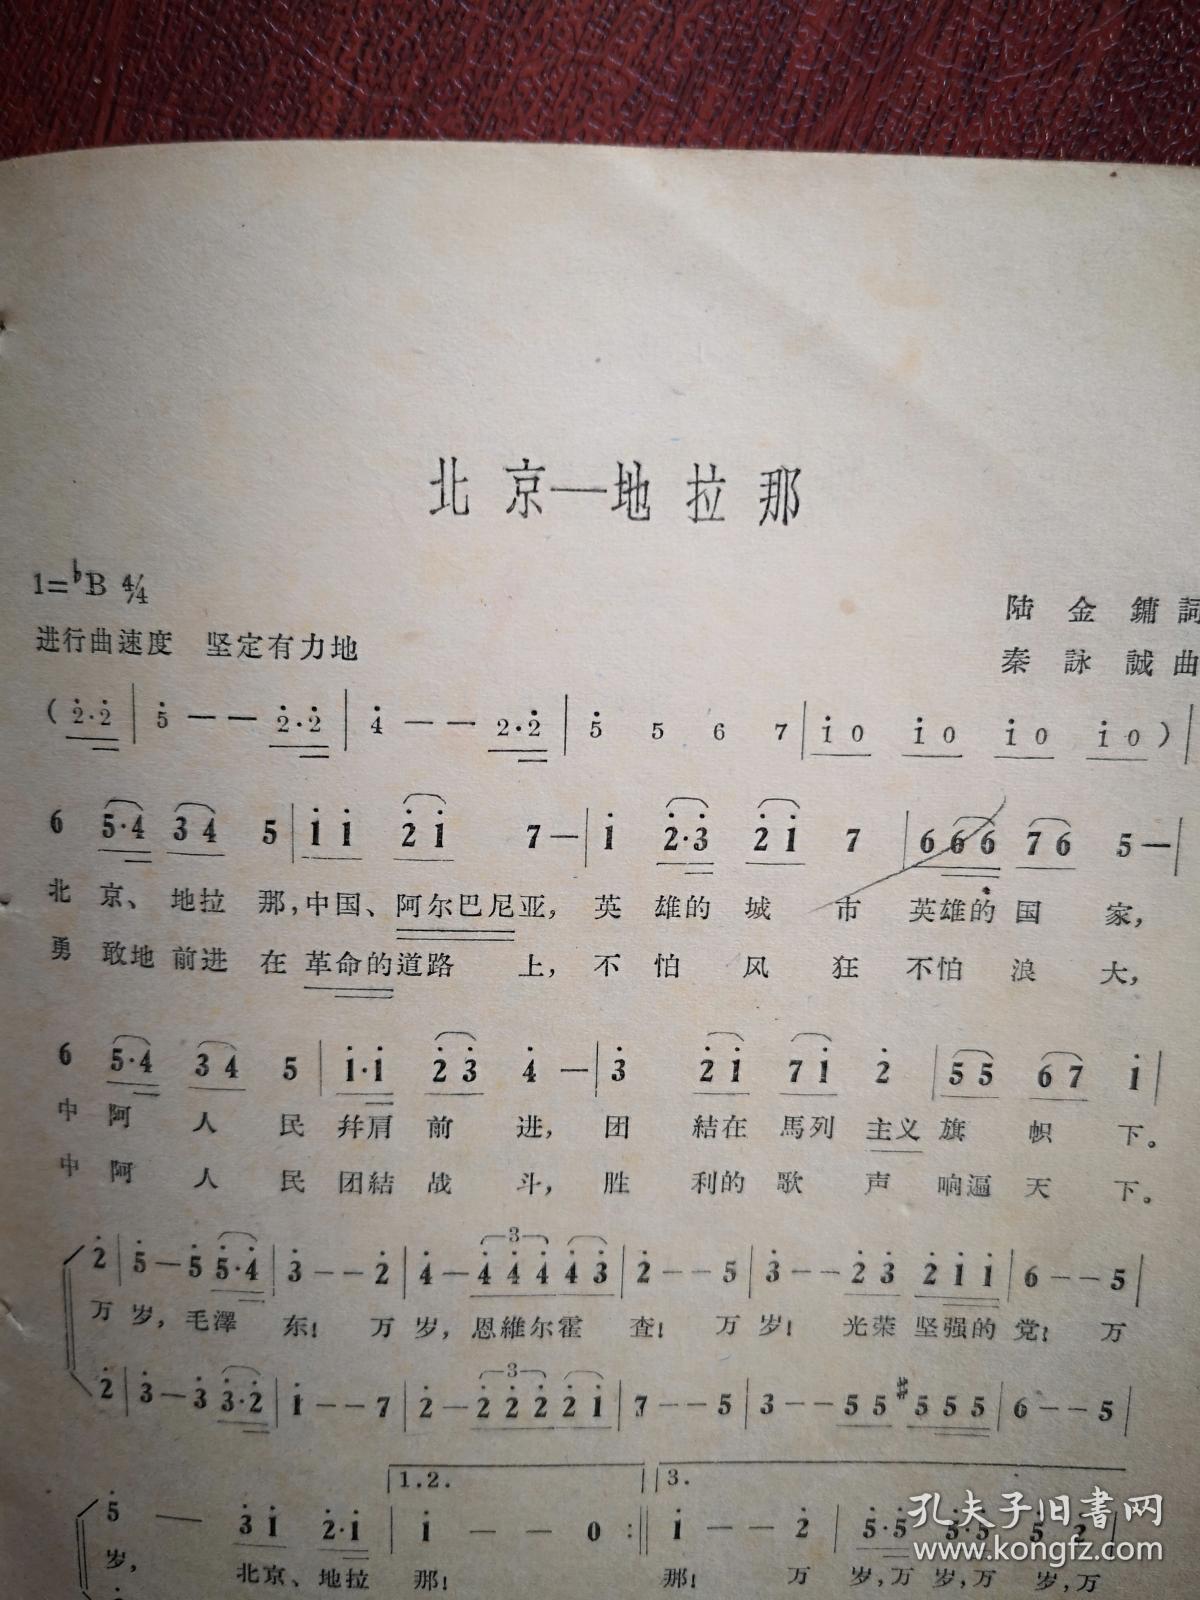 北京—地拉那
1=♭B 4/4
陆金鏞詞
进行曲速度 坚定有力地
秦詠誠曲
( 2̇·2̇ | 5̇ — — 2̇·2̇ | 4̇ — — 2·2̇ | 5̇ 5 6 7 | i̇0 i̇0 i̇0 i̇0 ) |
6 5·4 3 4 5 | 1̇ 1̇ 2̇ 1̇ 7 — | 1̇ 2̇·3̇ 2̇ 1̇ 7 | 6 6 6 7 6 5 — |
北京、地拉那,中国、阿尔巴尼亚, 英雄的城市 英雄的国家,
勇敢地前进在革命的道路上, 不怕风狂 不怕浪大,
6 5·4 3 4 5 | 1̇·1̇ 2̇ 3̇ 4̇ — | 3̇ 2̇ 1̇ 7 1̇ 2̇ | 5 5 6 7 1̇ |
中阿人民幷肩前进, 团結在馬列主义旗帜下。
中阿人民团結战斗, 胜利的歌声响遍天下。
2̇ | 5̇ — 5̇ 5̇·4̇ | 3̇ — — 2̇ | 4̇ — 4̇ 4̇ 4̇ 4̇ 3̇ | 2̇ — — 5 | 3̇ — — 2̇ 3̇ 2̇ 1̇ 1̇ | 6 — — 5 |
万岁,毛澤东! 万岁,恩維尔霍查! 万岁! 光荣坚强的党! 万
2̇ | 3̇ — 3̇ 3̇·2̇ | 1̇ — — 7 | 2̇ — 2̇ 2̇ 2̇ 2̇ 1̇ | 7 — — 5 | 3 — — 5 5 #5 5 5 | 6 — — 5 |
1.2. 3.
5̇ — 3̇ 1̇ 2̇·1̇ | 1̇ — — 0 :‖ 1̇ — — 2̇ | 5̇·5̇ 5̇·5̇ 5̇ 2̇ |
岁, 北京、地拉那! 那! 万岁,万岁,万岁,万
孔夫子旧書网
www.kongfz.com